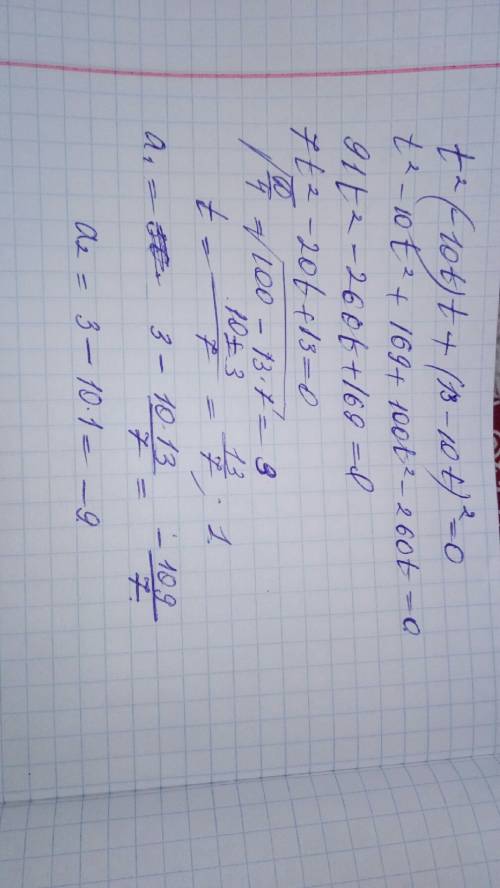 t² (-10t) t + (13 - 10t)² = 0
t² - 10t² + 169 + 100t² - 260t = 0
91t² - 260t + 169 = 0
7t² - 20t + 13 = 0
√D/4 = √100 - 13·7 = 3
t = 10 ± 3 / 7 = 13/7 ; 1
a₁ = 3 - 10·13/7 = -109/7
a₂ = 3 - 10·1 = -9